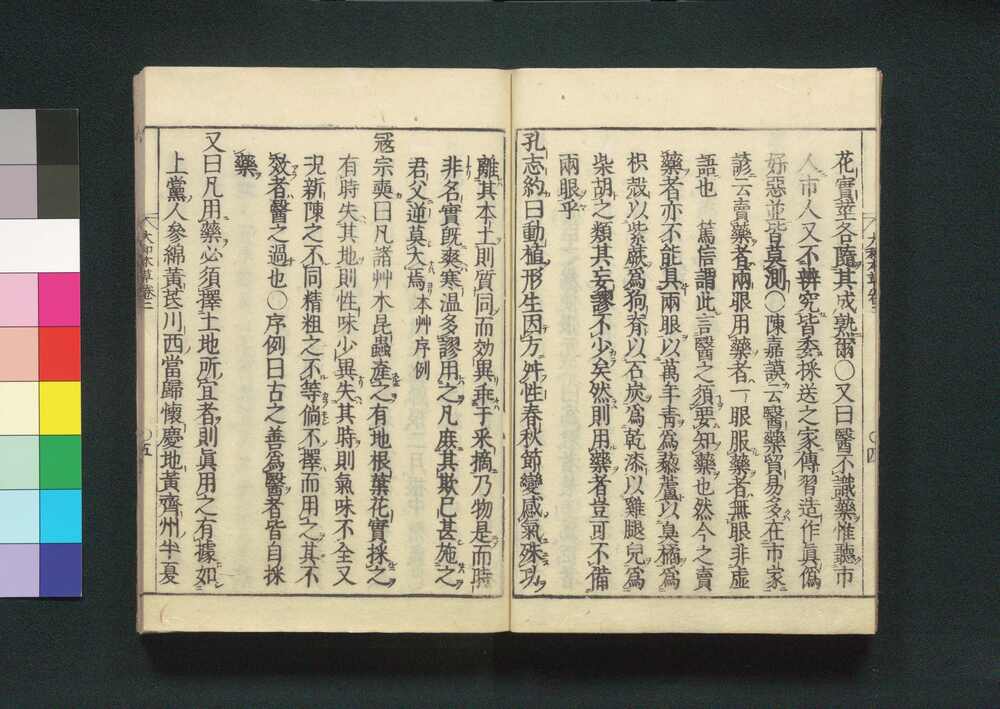 花實莖各隨其成熟爾〇又曰醫不識藥惟聽市
人市人又不辨究皆委採送之家傳習造作眞僞
好惡並皆莫測〇陳嘉謨云醫藥貿易多在市家
諺云賣藥者兩眼用藥者一眼服藥者無眼非虛
語也　篤信謂此言醫之須要知藥也然今之賣
藥者亦不能具兩眼以萬年靑爲藜蘆以臭橘爲
枳殼以紫蕨爲狗脊以石炭爲乾漆以雞腿兒爲
柴胡之類其妄謬不少矣然則用藥者豈可不備
兩眼乎
孔志約曰動植形生因方舛性春秋節變感氣殊功
大和本草卷二　〇四
離其本土則質同而効異乖于采摘乃物是而時
非名實旣爽寒温多謬用之凡庶其欺已甚施之
君父逆莫大焉　本艸序例
冦宗奭曰凡諸艸木昆蟲產之有地根葉花實採之
有時失其地則性味少異失其時則氣味不全又
况新陳之不同精粗之不等倘不擇而用之其不
效者醫之過也〇序例曰古之善爲醫者皆自採
藥
又曰凡用藥必須擇土地所宜者則眞用之有據如
上黨人參綿黃芪川西當歸懷慶地黃齊州半夏
大和本草卷二　〇五